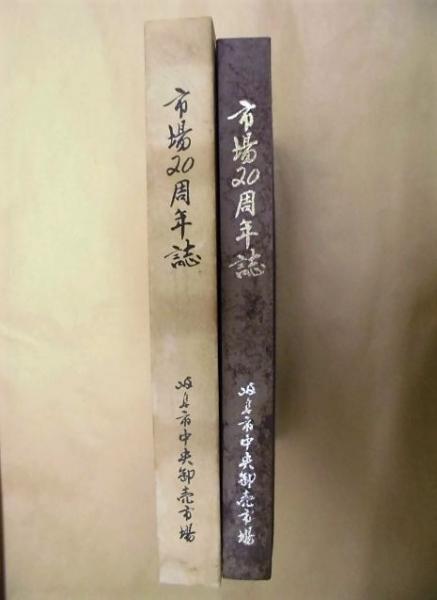 市場20周年誌
岐阜市中央卸売市場
市場20周年誌
岐阜市中央卸売市場